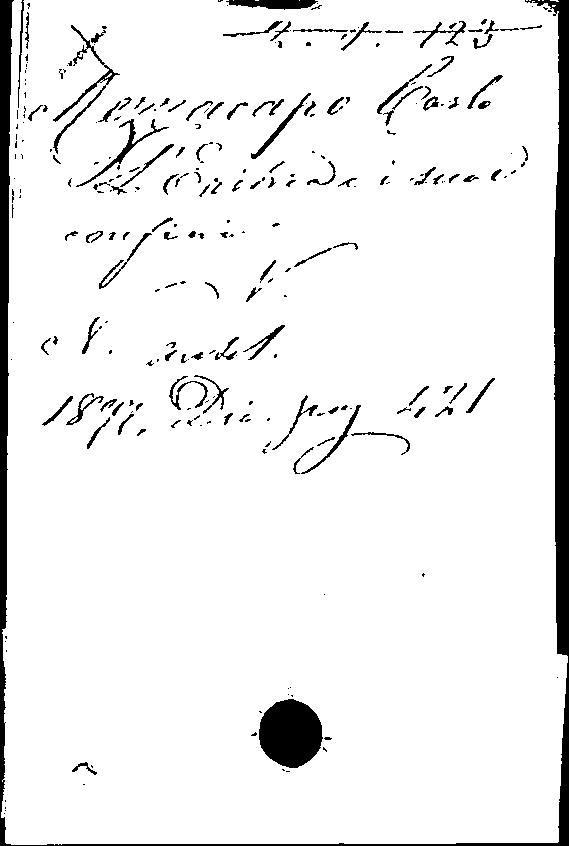 2. 1. 123
Mezzacapo Carlo
L'Eritrea e i suoi
confini
N. antol.
1897, Dic. pag 421